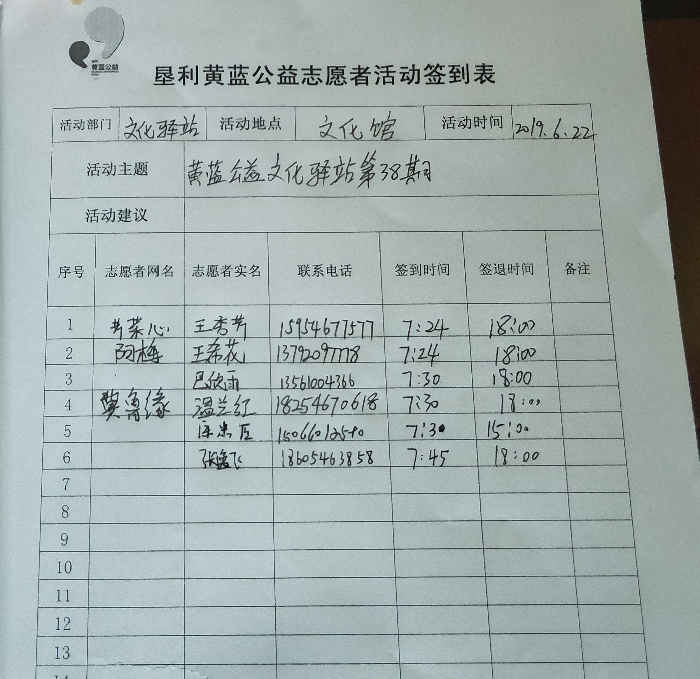 黄蓝公益
垦利黄蓝公益志愿者活动签到表
活动部门 文化驿站 活动地点 文化馆 活动时间 2019.6.22
活动主题 黄蓝公益文化驿站第38期
活动建议
序号 志愿者网名 志愿者实名 联系电话 签到时间 签退时间 备注
1 王秀芳 15954677577 7:24 18:00
2 阿梅 王希花 13792097778 7:24 18:00
3 巴欣雨 13561004366 7:30 18:00
4 冀鲁缘 温兰红 18254670618 7:30 18:00
5 7:30 15:00
6 张孟飞 18605463858 7:45 18:00
7
8
9
10
11
12
13